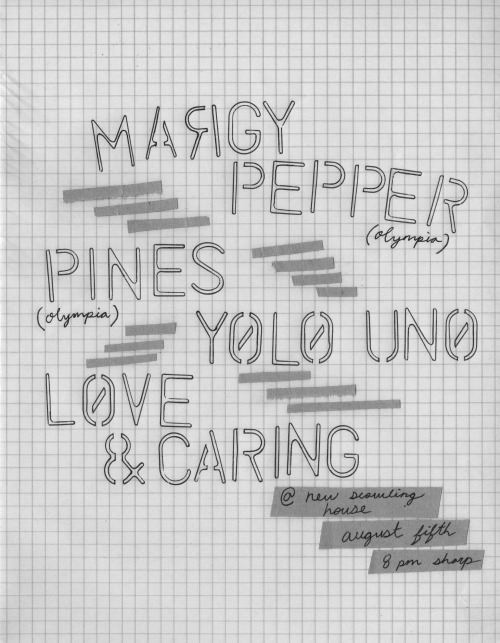 MARGY
PEPPER
(olympia)
PINES
(olympia)
YOLO UNO
LOVE
& CARING
@ new
house
august fifth
8 pm sharp